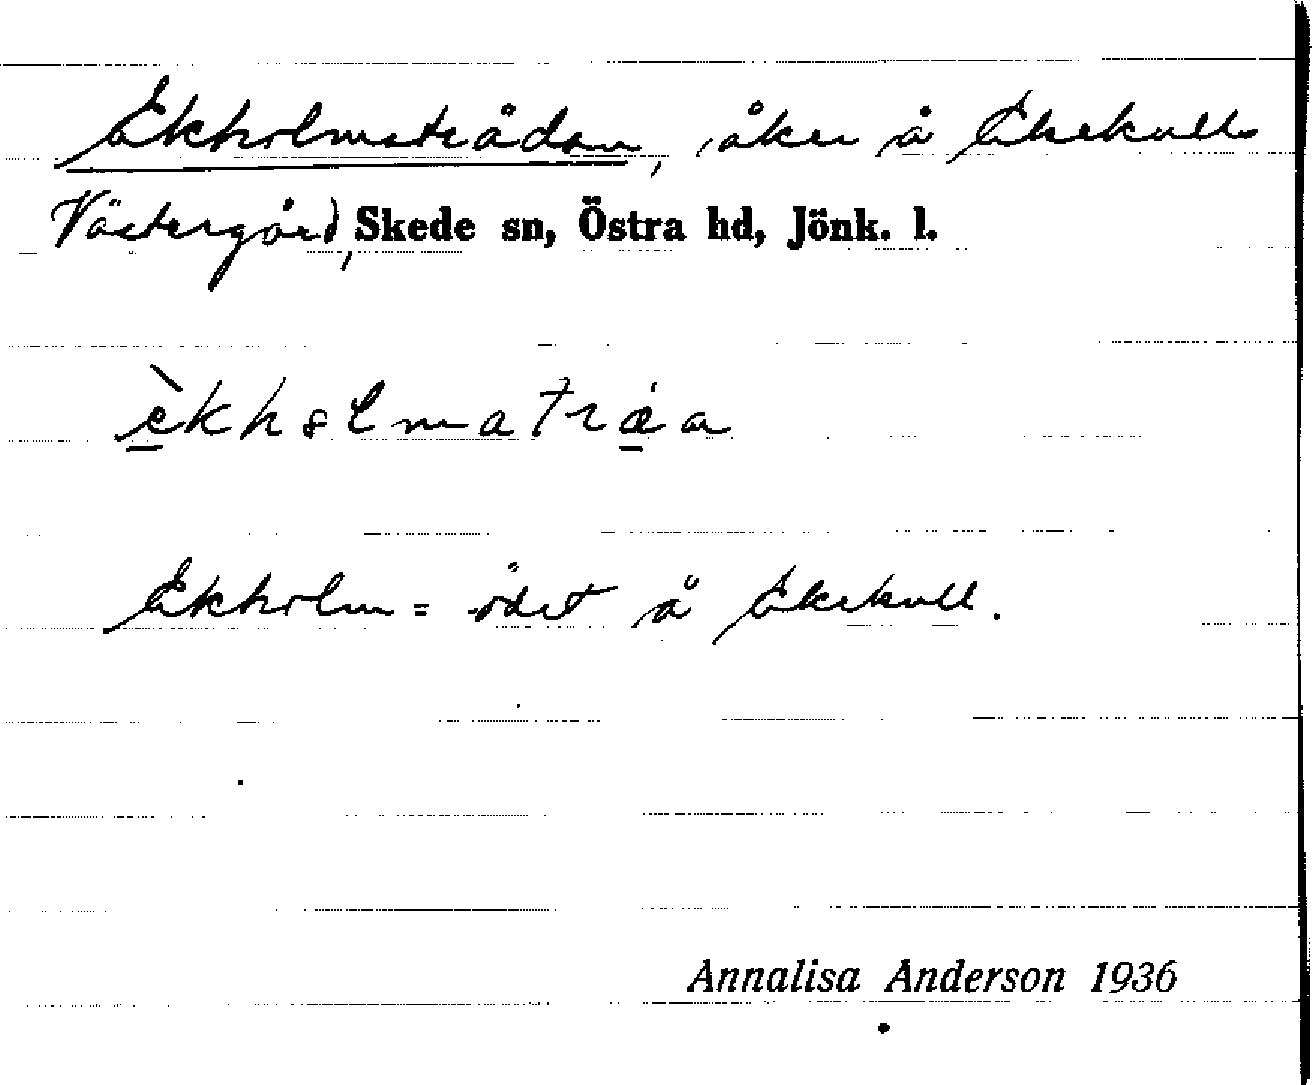 Ekholmsträdan, åker å Ekekull
Västergård, Skede sn, Östra hd, Jönk. l.
èkholmatráa
Ekholm = ödet å Ekekull.
Annalisa Anderson 1936